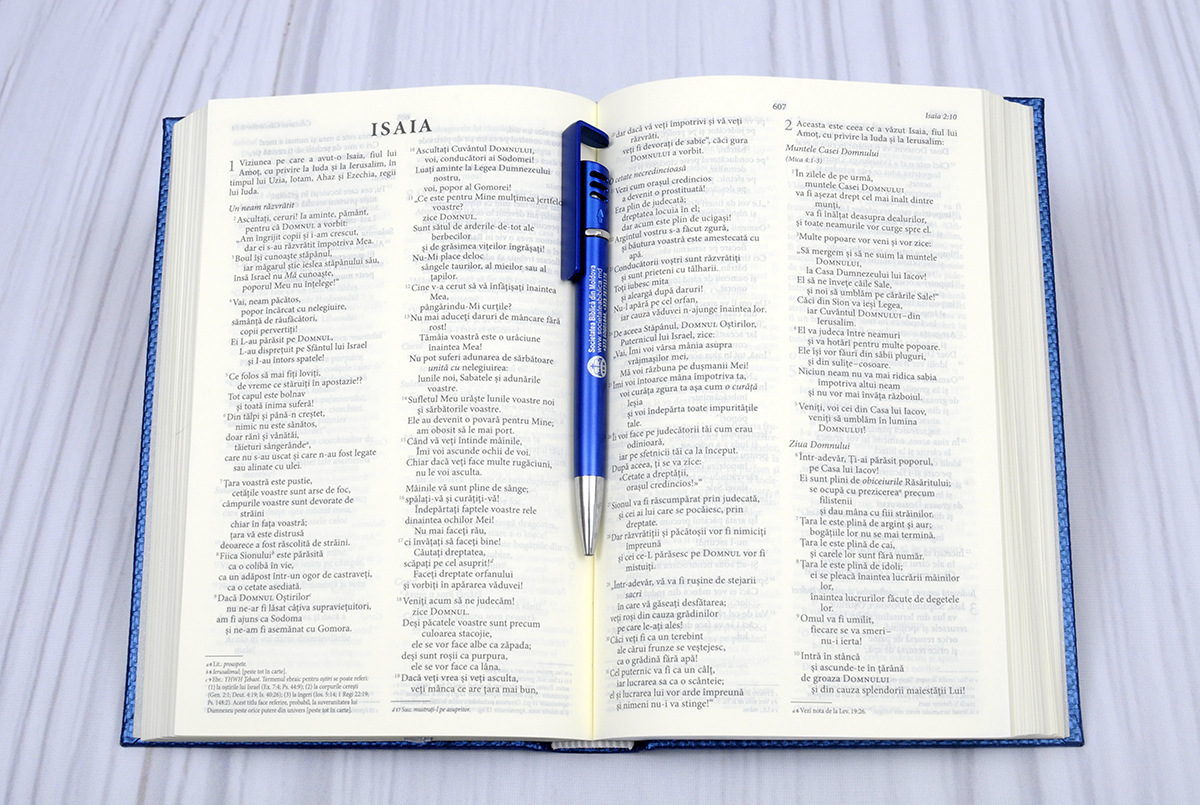 ISAIA
1 Viziunea pe care a avut-o Isaia, fiul lui
Amoț, cu privire la Iuda și la Ierusalim, în
timpul lui Uzia, Iotam, Ahaz și Ezechia, regii
lui Iuda.
Un neam răzvrătit
2 Ascultați, ceruri! Ia aminte, pământ,
pentru că DOMNUL a vorbit:
„Am îngrijit copii și i-am crescut,
dar ei s-au răzvrătit împotriva Mea.
3 Boul își cunoaște stăpânul,
iar măgarul știe ieslea stăpânului său,
însă Israel nu Mă cunoaște,
poporul Meu nu înțelege!”
4 Vai, neam păcătos,
popor încărcat cu nelegiuire,
sămânță de răufăcători,
copii pervertiți!
Ei L-au părăsit pe DOMNUL,
L-au disprețuit pe Sfântul lui Israel
și I-au întors spatele!
5 Ce folos să mai fiți loviți,
de vreme ce stăruiți în apostazie!?
Tot capul este bolnav
și toată inima suferă!
6 Din tălpi și până-n creștet,
nimic nu este sănătos,
doar răni și vânătăi,
tăieturi sângerânde a,
care nu s-au uscat și care n-au fost legate
sau alinate cu ulei.
7 Țara voastră este pustie,
cetățile voastre sunt arse de foc,
câmpurile voastre sunt devorate de
străini
chiar în fața voastră;
țara va este distrusă
deoarece a fost răscolită de străini.
8 Fiica Sionului b este părăsită
ca o colibă în vie,
ca un adăpost într-un ogor de castraveți,
ca o cetate asediată.
9 Dacă DOMNUL Oștirilor c
nu ne-ar fi lăsat câțiva supraviețuitori,
am fi ajuns ca Sodoma
și ne-am fi asemănat cu Gomora.
a 6 Lit.: proaspete.
b 8 Ierusalimul; [peste tot în carte].
c 9 Ebr.: YHWH Țebaot. Termenul ebraic pentru oștiri se poate referi:
(1) la oștirile lui Israel (Ex. 7:4; Ps. 44:9); (2) la corpurile cerești
(Gen. 2:1; Deut. 4:19; Is. 40:26); (3) la îngeri (Ios. 5:14; 1 Regi 22:19;
Ps. 148:2). Acest titlu face referire, probabil, la suveranitatea lui
Dumnezeu peste orice putere din univers [peste tot în carte].
10 Ascultați Cuvântul DOMNULUI,
voi, conducători ai Sodomei!
Luați aminte la Legea Dumnezeului
nostru,
voi, popor al Gomorei!
11 „Ce este pentru Mine mulțimea jertfelor
voastre?
zice DOMNUL.
Sunt sătul de arderile-de-tot ale
berbecilor
și de grăsimea vițeilor îngrășați!
Nu-Mi place deloc
sângele taurilor, al mieilor sau al
țapilor.
12 Cine v-a cerut să vă înfățișați înaintea
Mea,
pângărindu-Mi curțile?
13 Nu mai aduceți daruri de mâncare fără
rost!
Tămâia voastră este o urăciune
înaintea Mea!
Nu pot suferi adunarea de sărbătoare
unită cu nelegiuirea:
lunile noi, Sabatele și adunările
voastre.
14 Sufletul Meu urăște lunile voastre noi
și sărbătorile voastre.
Ele au devenit o povară pentru Mine;
am obosit să le mai port.
15 Când vă veți întinde mâinile,
Îmi voi ascunde ochii de voi.
Chiar dacă veți face multe rugăciuni,
nu le voi asculta.
Mâinile vă sunt pline de sânge;
16 spălați-vă și curățiți-vă!
Îndepărtați faptele voastre rele
dinaintea ochilor Mei!
Nu mai faceți rău,
17 ci învățați să faceți bine!
Căutați dreptatea,
scăpați pe cel asuprit! d
Faceți dreptate orfanului
și vorbiți în apărarea văduvei!
18 Veniți acum să ne judecăm!
zice DOMNUL.
Deși păcatele voastre sunt precum
culoarea stacojie,
ele se vor face albe ca zăpada;
deși sunt roșii ca purpura,
ele se vor face ca lâna.
19 Dacă veți vrea și veți asculta,
veți mânca ce are țara mai bun,
d 17 Sau: mustrați-l pe asupritor.
Societatea Biblică din Moldova
www.societateabiblica.md
607
Isaia 2:10
20 dar dacă vă veți împotrivi și vă veți
răzvrăti,
veți fi devorați de sabie”, căci gura
DOMNULUI a vorbit.
O cetate necredincioasă
Vezi cum orașul credincios
a devenit o prostituată!
Era plin de judecată;
dreptatea locuia în el;
dar acum este plin de ucigași!
Argintul vostru s-a făcut zgură,
și băutura voastră este amestecată cu
apă.
Conducătorii voștri sunt răzvrătiți
și sunt prieteni cu tâlharii.
Toți iubesc mita
și aleargă după daruri!
Nu-l apără pe cel orfan,
iar cauza văduvei n-ajunge înaintea lor.
De aceea Stăpânul, DOMNUL Oștirilor,
Puternicul lui Israel, zice:
„Vai, Îmi voi vărsa mânia asupra
vrăjmașilor mei,
Mă voi răzbuna pe dușmanii Mei!
Îmi voi întoarce mâna împotriva ta,
voi curăța zgura ta așa cum o curăță
leșia
și voi îndepărta toate impuritățile
tale.
Îi voi face pe judecătorii tăi cum erau
odinioară,
iar pe sfetnicii tăi ca la început.
După aceea, ți se va zice:
«Cetate a dreptății,
oraș credincios!»”
Sionul va fi răscumpărat prin judecată,
și cei ai lui care se pocăiesc, prin
dreptate.
Dar răzvrătiții și păcătoșii vor fi nimiciți
împreună
și cei ce-L părăsesc pe DOMNUL vor fi
mistuiți.
„Într-adevăr, vă va fi rușine de stejarii
sacri
în care vă găseați desfătarea;
veți roși din cauza grădinilor
pe care le-ați ales!
Căci veți fi ca un terebint
ale cărui frunze se veștejesc,
ca o grădină fără apă!
Cel puternic va fi ca un câlț,
iar lucrarea sa ca o scânteie;
el și lucrarea lui vor arde împreună
și nimeni nu-i va stinge!”
2 Aceasta este ceea ce a văzut Isaia, fiul lui
Amoț, cu privire la Iuda și la Ierusalim:
Muntele Casei Domnului
(Mica 4:1-3)
2 În zilele de pe urmă,
muntele Casei DOMNULUI
va fi așezat drept cel mai înalt dintre
munți,
va fi înălțat deasupra dealurilor,
și toate neamurile vor curge spre el.
3 Multe popoare vor veni și vor zice:
„Să mergem și să ne suim la muntele
DOMNULUI,
la Casa Dumnezeului lui Iacov!
El să ne învețe căile Sale,
și noi să umblăm pe cărările Sale!”
Căci din Sion va ieși Legea,
iar Cuvântul DOMNULUI – din
Ierusalim.
4 El va judeca între neamuri
și va hotărî pentru multe popoare.
Ele își vor făuri din săbii pluguri,
și din sulițe – cosoare.
Niciun neam nu va mai ridica sabia
împotriva altui neam
și nu vor mai învăța războiul.
5 Veniți, voi cei din Casa lui Iacov,
veniți să umblăm în lumina
DOMNULUI!
Ziua Domnului
6 Într-adevăr, Ți-ai părăsit poporul,
pe Casa lui Iacov!
Ei sunt plini de obiceiurile Răsăritului;
se ocupă cu prezicerea a precum
filistenii
și dau mâna cu fiii străinilor.
7 Țara le este plină de argint și aur;
bogățiile lor nu se mai termină.
Țara le este plină de cai,
și carele lor sunt fără număr.
8 Țara le este plină de idoli;
ei se pleacă înaintea lucrării mâinilor
lor,
înaintea lucrurilor făcute de degetele
lor.
9 Omul va fi umilit,
fiecare se va smeri –
nu-i ierta!
10 Intră în stâncă
și ascunde-te în țărână
de groaza DOMNULUI
și din cauza splendorii maiestății Lui!
a 6 Vezi nota de la Lev. 19:26.